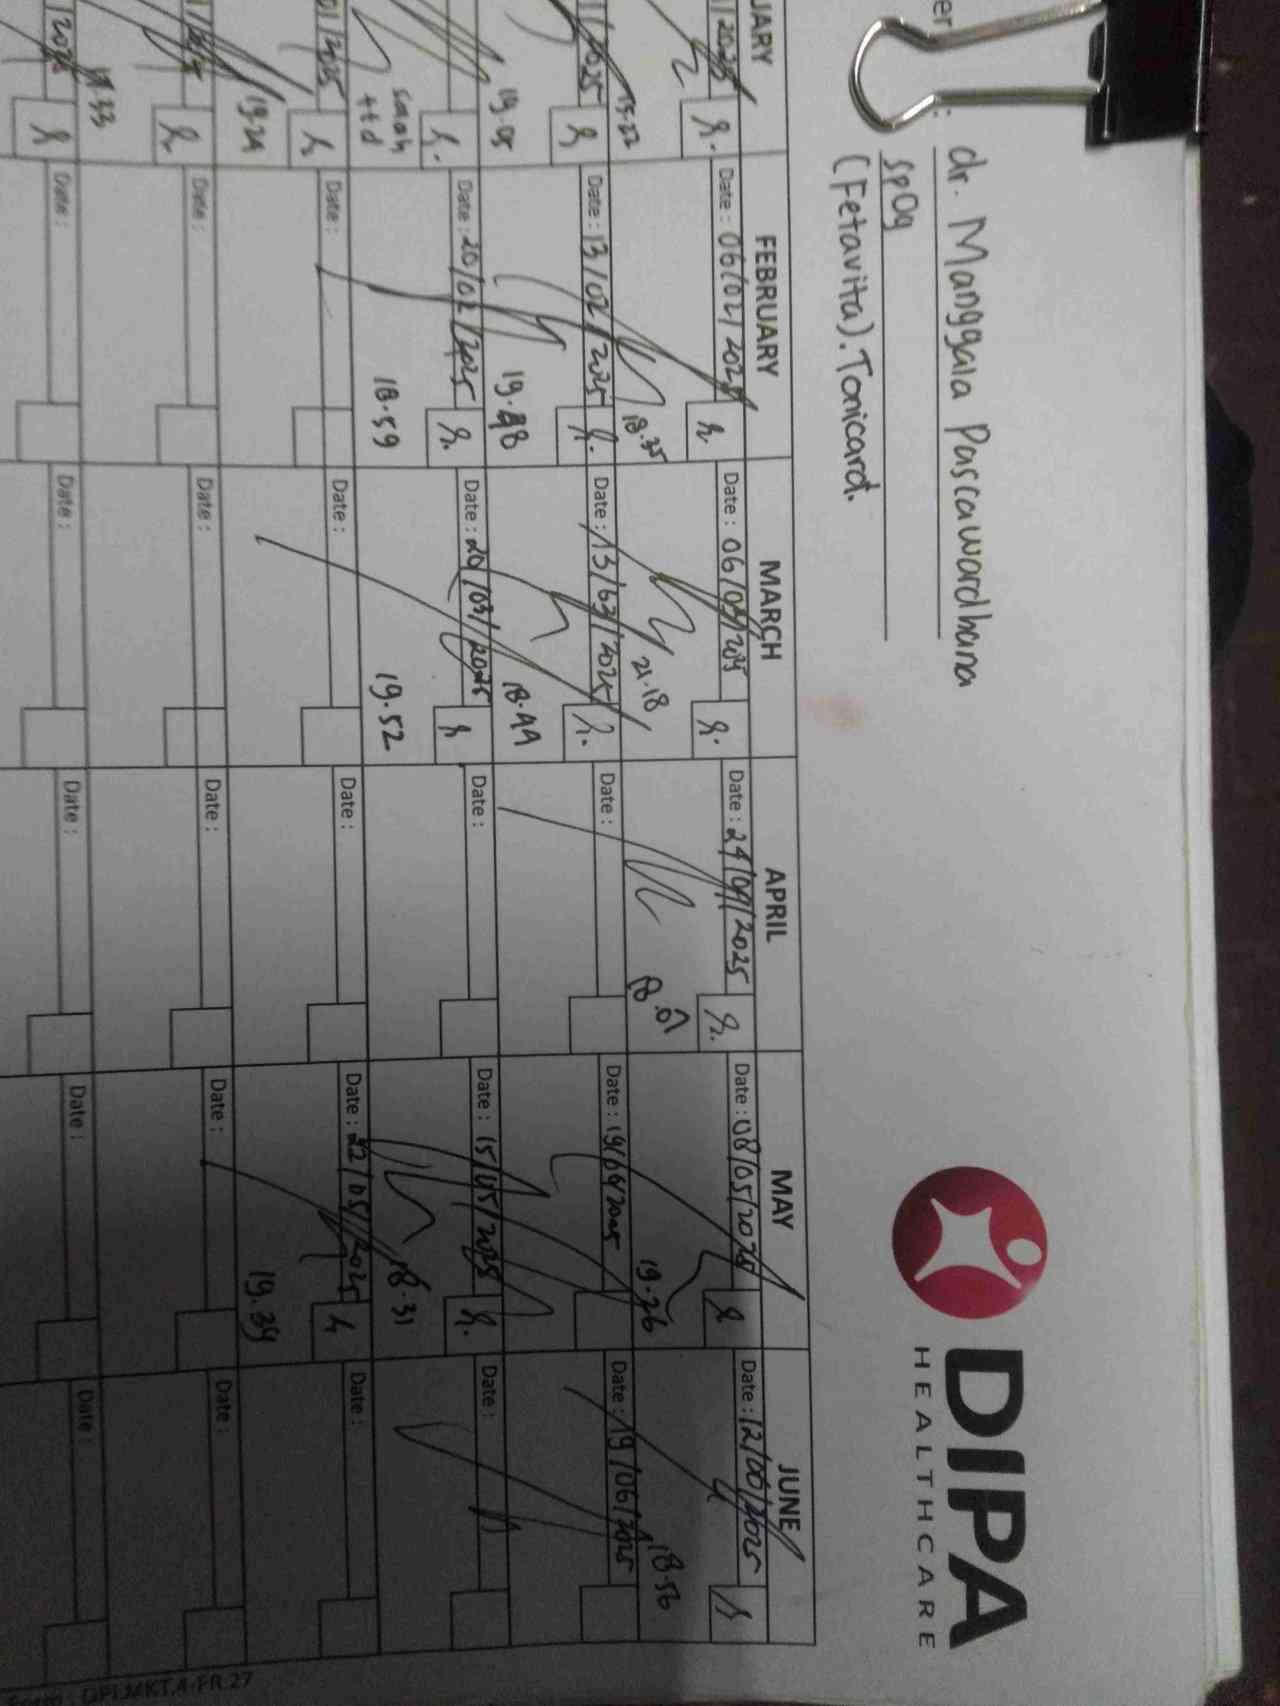 DIPA
HEALTHCARE
er :
dr. Manggala Pascawardhana
SpOg
(Fetavita). Tonicard.
UARY
FEBRUARY
MARCH
APRIL
MAY
JUNE
Date : 06/02/2025
Date : 06/03/2025
Date : 24/04/2025
Date : 08/05/2025
Date : 12/06/2025
15.22
18.35
21.18
18.01
19.26
18.56
/2025
Date : 13/02/2025
Date : 13/03/2025
Date :
Date : 19/06/2025
Date : 19/06/2025
19.05
19.48
18.44
Date : 20/02/2025
Date : 20/03/2025
Date :
Date : 15/05/2025
Date :
ttd
18.59
19.52
18.31
01/2025
Date :
Date :
Date :
Date : 22/05/2025
Date :
19.24
19.39
Date :
Date :
Date :
Date :
Date :
Date :
Date :
Date :
Date :
Date :
Form : DPI.MKT.4-FR.27